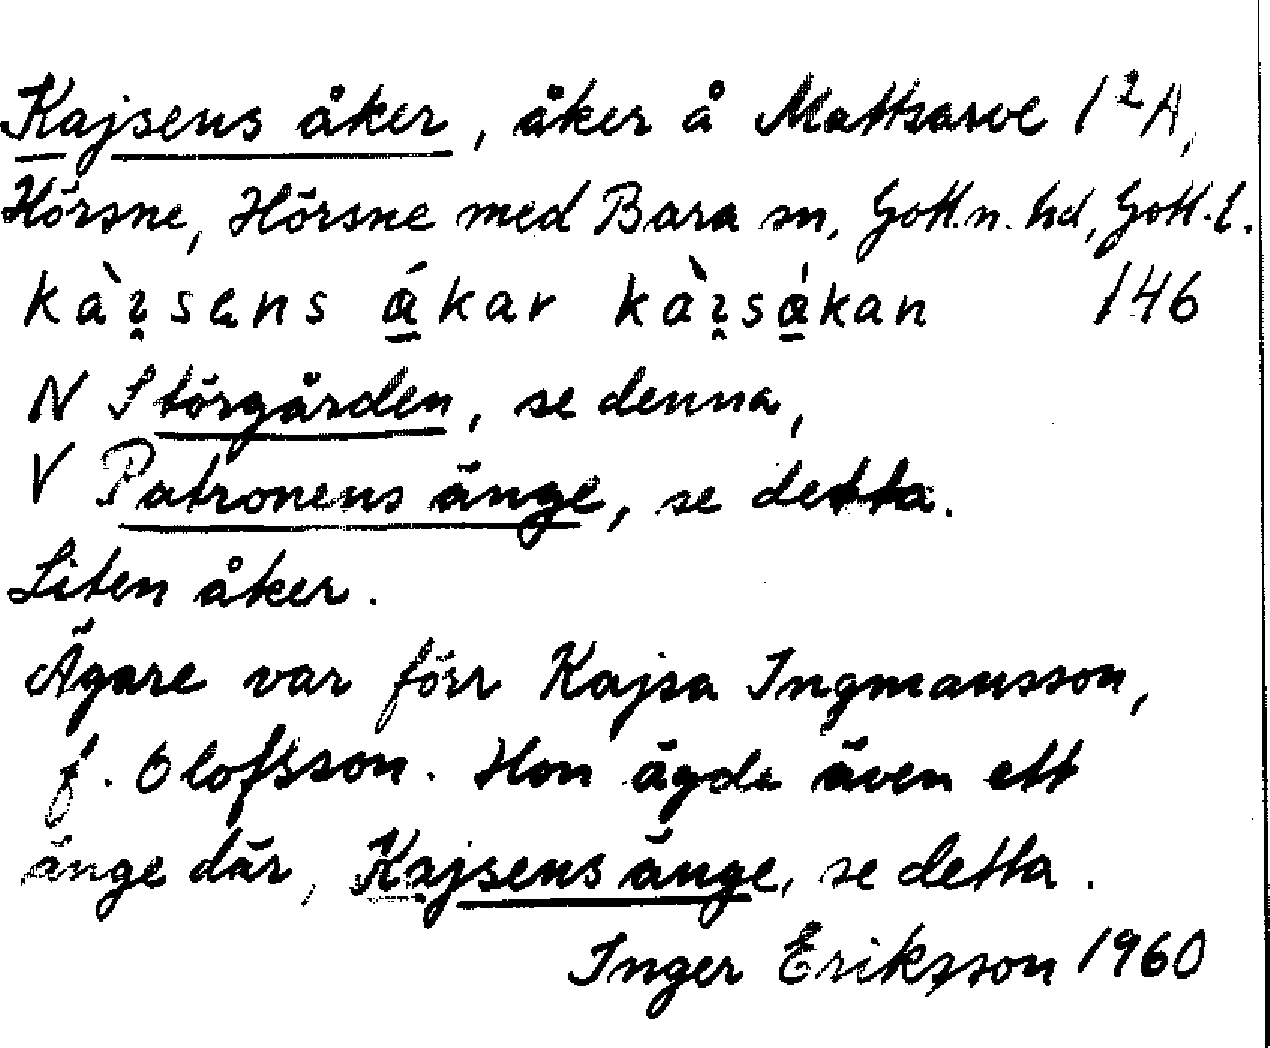 Kajsens åker, åker å Mattsarve 1²A,
Hörsne, Hörsne med Bara sn, Gotl.n. hd, Gotl.l.
kàɪ̯sɛns ákar kàɪ̯sákan 146
N Störgården, se denna,
V Patronens änge, se detta.
Liten åker.
Ägare var förr Kajsa Ingmansson,
f. Olofsson. Hon ägde även ett
änge där, Kajsens änge, se detta.
Inger Eriksson 1960